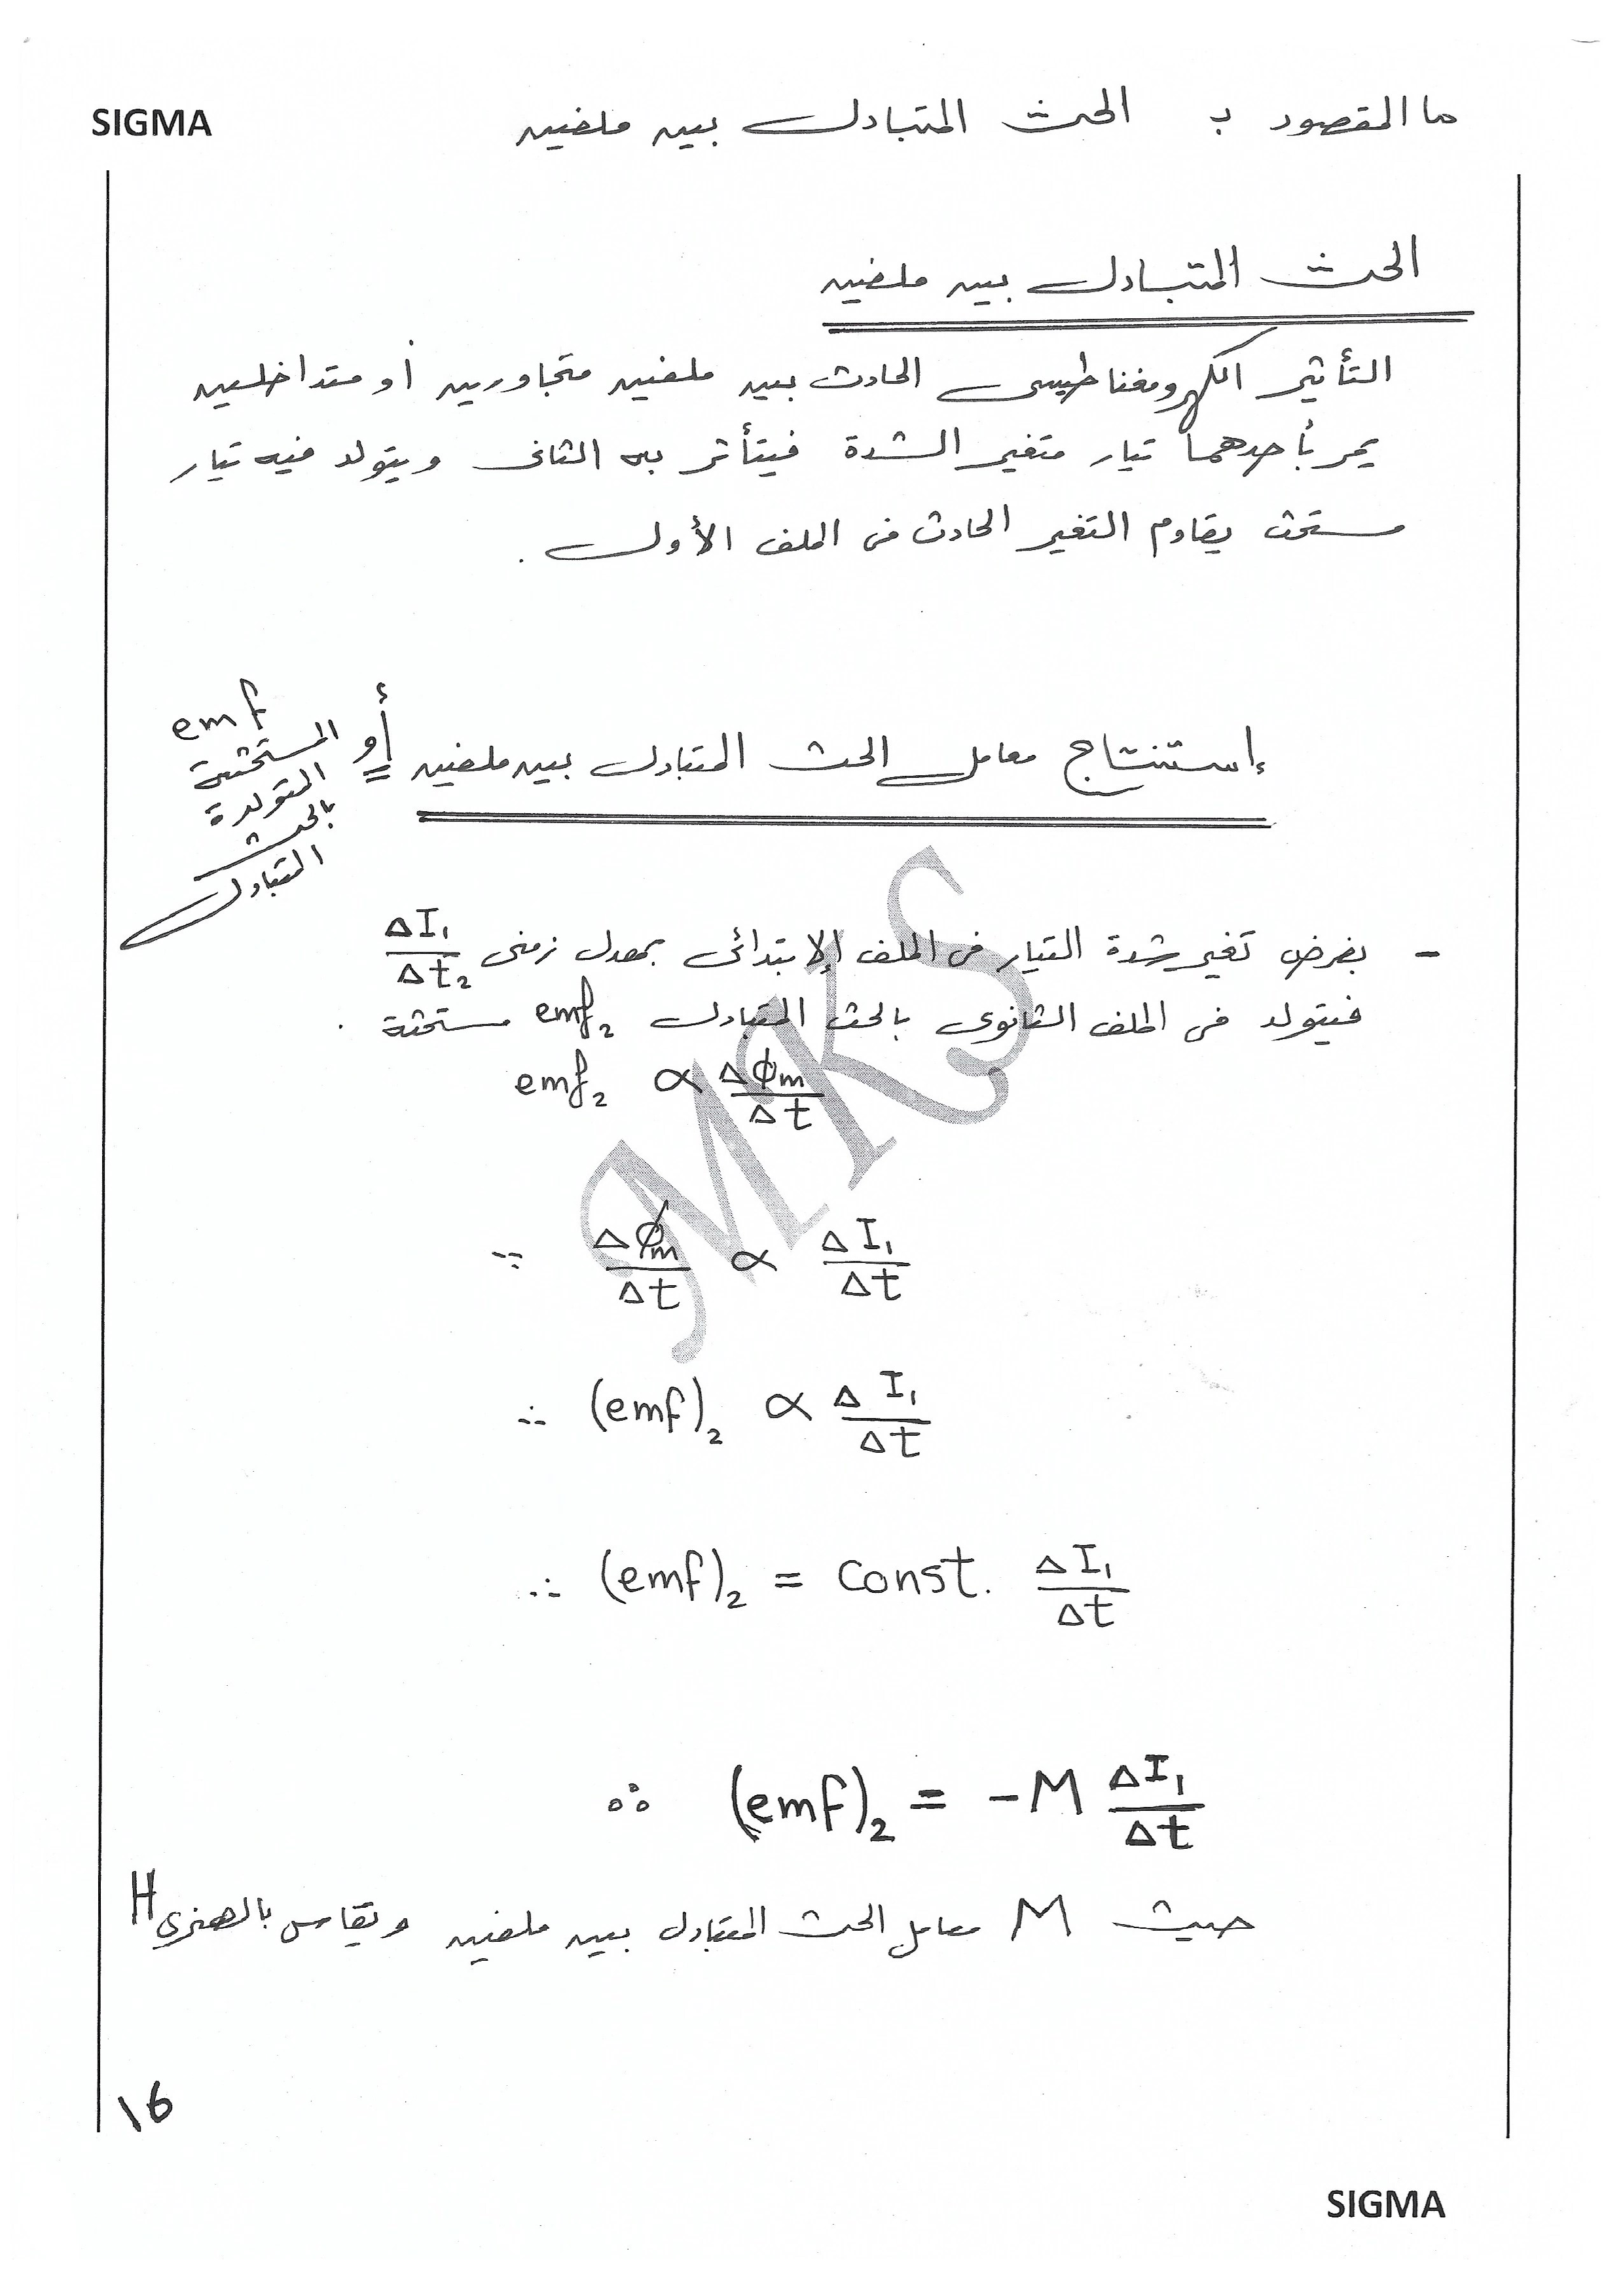 SIGMA
ما المقصود ب الحث المتبادل بين ملفين
الحث المتبادل بين ملفين
التأثير الكهرومغناطيسى الحادث بين ملفين متجاورين أو متداخلين
يمر بأحدهما تيار متغير الشدة فيتأثر به الثانى ويتولد فيه تيار
مستحث يقاوم التغير الحادث فى الملف الأول .
إستنتاج معامل الحث المتبادل بين ملفين أو
emf
المستحثة
المتولدة
بالحث
المتبادل
- بفرض تغير شدة التيار فى الملف الإبتدائى بمعدل زمنى ΔI₁/Δt₂
فيتولد فى الملف الثانوى بالحث المتبادل emf₂ مستحثة .
emf₂ ∝ Δϕm/Δt
∵ Δϕm/Δt ∝ ΔI₁/Δt
∴ (emf)₂ ∝ ΔI₁/Δt
∴ (emf)₂ = Const. ΔI₁/Δt
∴ (emf)₂ = -M ΔI₁/Δt
حيث M معامل الحث المتبادل بين ملفين ويقاس بالهنرى H
MKS
١6
SIGMA